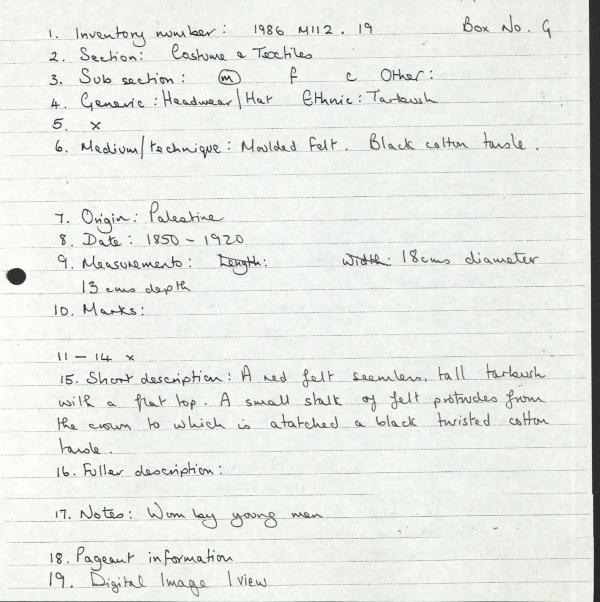 1. Inventory number: 1986 M112.19 Box No. G
2. Section: Costume & Textiles
3. Sub section: m f c Other:
4. Generic: Headwear/Hat Ethnic: Tarbush
5. x
6. Medium/technique: Moulded felt. Black cotton tassle.
7. Origin: Palestine
8. Date: 1850 - 1920
9. Measurements: Length: Width: 18cms diameter
13 cms depth
10. Marks:
11 - 14 x
15. Short description: A red felt seemless, tall tarbush
with a flat top. A small stalk of felt protrudes from
the crown to which is atatched a black twisted cotton
tassle.
16. Fuller description:
17. Notes: Worn by young men
18. Pageant information
19. Digital Image 1 view